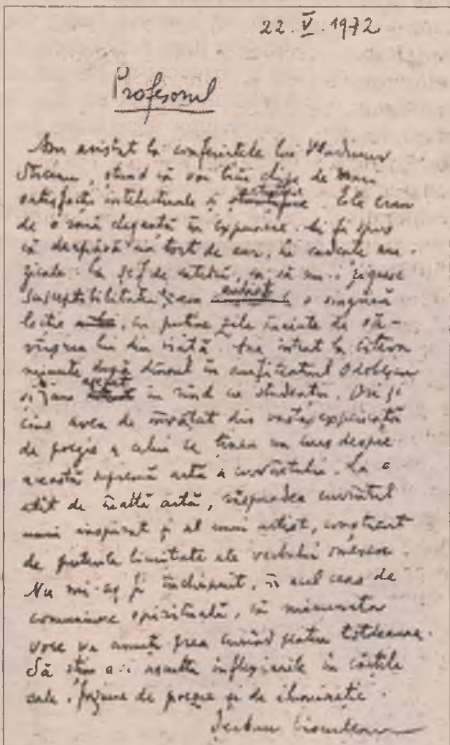 22.V.1972
Profesorul
Am asistat la conferințele lui Vladimir
Streinu, știind că voi trăi clipe de mari
satisfacții intelectuale și Ele erau
de o rară eleganță în expunere. Ai fi spus
că despică un tort de aur, în cuvinte mu-
zicale. Ca șef de catedră, ca să nu-i jignesc
susceptibilitatea, o singură
lecție cu puține zile înainte de să-
vîrșirea lui din viață. Am intrat la cîteva
minute după dînsul în amfiteatrul Odobescu
și în rînd cu studenții. Ori și
cine avea de învățat din vasta experiență
de poezie a celui ce ținea un curs despre
această supremă artă a cuvîntului. La o
atît de înaltă artă, răspundea cuvîntul
unui inspirat și al unui artist, conștient
de putințele limitate ale verbului omenesc.
Nu mi-aș fi închipuit, în acel ceas de
comuniune spirituală, că minunata
voce va amuți prea curînd pentru totdeauna.
Să știm a-i asculta inflexiunile în cărțile
sale, de poezie și de iluminație.
Șerban Cioculescu